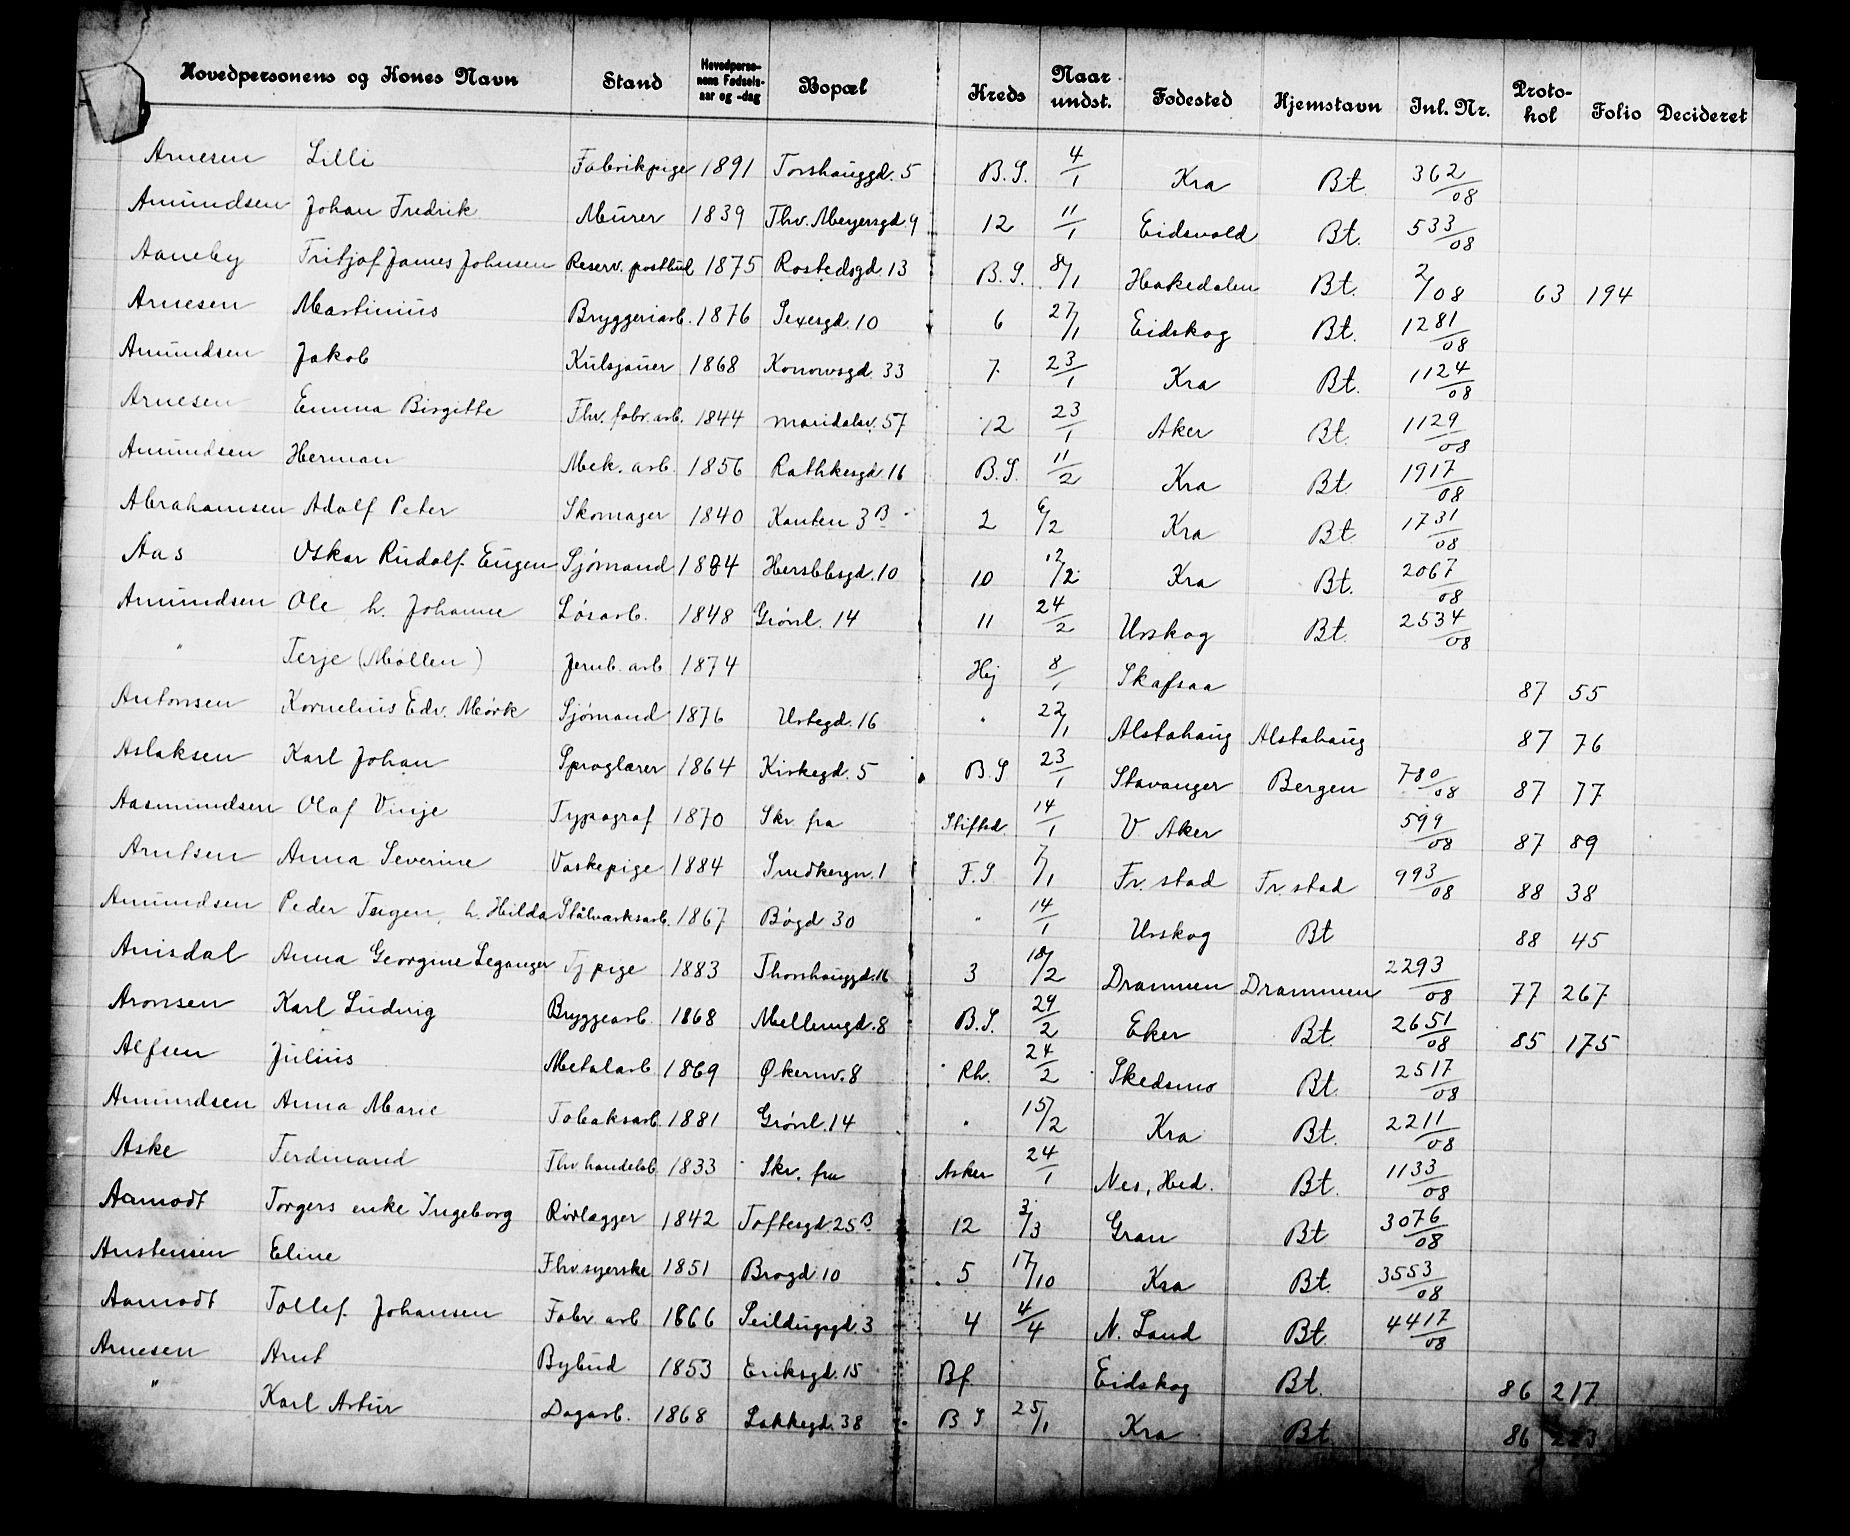 Hovedpersonens og Kones Navn Stand Hovedpersonens Fødselsaar og -dag Bopæl Kreds Naar undst. Fødested Hjemstavn Inl. Nr. Protokol Folio Decideret
Arnesen Lilli Fabrikpige 1891 Torshauggd. 5 B.S. 4/1 Kra Bt. 362/08
Amundsen Johan Fredrik Murer 1839 Thv. Meyersgd. 9 12 11/1 Eidsvold Bt. 533/08
Aaneby Fritjof James Johnsen Reserv. postbud 1875 Rostedsgd. 13 B.S. 8/1 Hakedalen Bt. 2/08 63 194
Arnesen Martinius Bryggeriarb. 1876 Sexesgd. 10 6 27/1 Eidskog Bt. 1281/08
Amundsen Jakob Kulsjauer 1868 Konowsgd. 33 7 23/1 Kra Bt. 1124/08
Arnesen Emma Birgitte Fhv. fabr. arb. 1844 Maridalsv. 57 12 23/1 Aker Bt. 1129/08
Amundsen Herman Mek. arb. 1856 Rathkesgd. 16 B.S. 11/2 Kra Bt. 1917/08
Abrahamsen Adolf Peter Skomager 1840 Kanten 3 B 2 6/2 Kra Bt. 1731/08
Aas Oskar Rudolf Eugen Sjømand 1884 Herslebsgd. 10 10 12/2 Kra Bt. 2067/08
Amundsen Ole h. Johanne Løsarb. 1848 Grønl. 14 11 24/2 Urskog Bt. 2534/08
" Terje (Møllen) Jernb. arb. 1874 Hej 8/1 Skafsaa 87 55
Antonsen Kornelius Edv. Mørk Sjømand 1876 Urtegd. 16 " 22/1 Alstahaug Alstahaug 87 76
Aslaksen Karl Johan Sproglærer 1864 Kirkegd. 5 B.S 23/1 Stavanger Bergen 780/08 87 77
Aasmundsen Olaf Vinje Typograf 1870 Skr. fra Stiftsd. 14/1 V. Aker 599/08 87 89
Arntsen Anna Severine Vaskepige 1884 Smedkergn. 1 F.S 7/1 Fr. stad Fr. stad 993/08 88 38
Amundsen Peder h. Hilda Stålværksarb. 1867 Bøgd 30 " 14/1 Urskog Bt 88 45
Anisdal Anna Georgine Leganger Tj pige 1883 Thorshauggd. 16 3 18/2 Drammen Drammen 2293/08 77 267
Aronsen Karl Ludvig Bryggearb. 1868 Mellemgd. 8 B.S. 29/2 Eker Bt. 2651/08 85 175
Alfsen Julius Metalarb 1869 Økernv. 8 Rh. 24/2 Skedsmo Bt. 2517/08
Amundsen Anna Marie Tobaksarb. 1881 Grønl. 14 " 15/2 Kra Bt. 2211/08
Aske Ferdinand Fhv. handelsb. 1833 Skr. fra Asker 24/1 Nes, Hed. Bt. 1133/08
Aamodt Torgers enke Ingeborg Rørlægger 1842 Toftesgd. 25 B 12 3/3 Gran Bt 3076/08
Anstensen Eline Fhv. syerske 1851 Brogd. 10 5 17/10 Kra Bt. 3553/08
Aamodt Tollef Johansen Fabr. arb 1866 Seildugsgd. 3 4 4/4 N. Land Bt. 4417/08
Arnesen Arnt Bybud 1853 Eriksgd. 15 Bf. Eidskog Bt. 86 217
" Karl Artur Dagarb. 1868 Lakkegd. 38 B S 25/1 Kra Bt 86 223